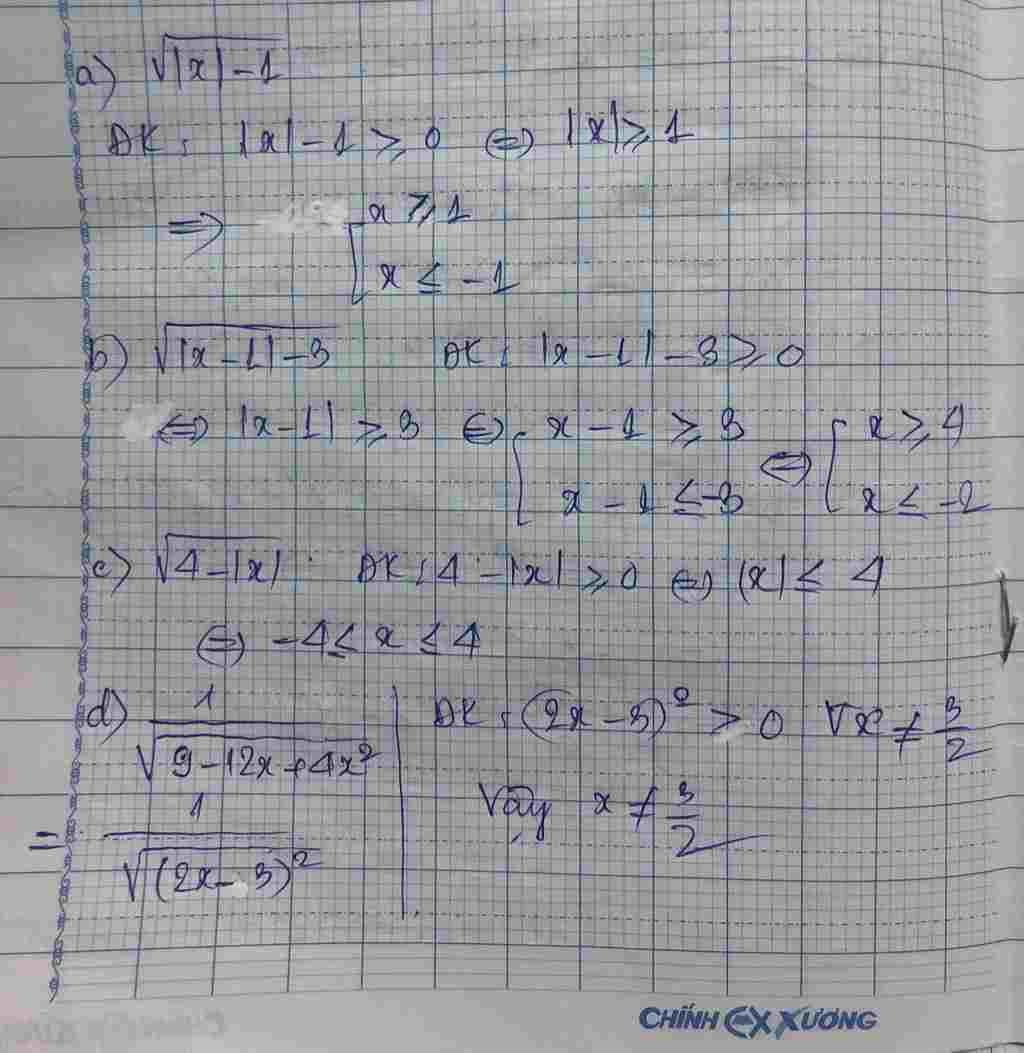 a) √|x| - 1
ĐK: |x| - 1 ⩾ 0 ⇔ |x| ⩾ 1
⇒ [ x ⩾ 1
x ≤ -1
b) √|x - 1| - 3 ĐK: |x - 1| - 3 ⩾ 0
⇔ |x - 1| ⩾ 3 ⇔ [ x - 1 ⩾ 3 ⇔ [ x ⩾ 4
x - 1 ≤ -3 x ≤ -2
c) √4 - |x| . ĐK: 4 - |x| ⩾ 0 ⇔ |x| ≤ 4
⇔ -4 ≤ x ≤ 4
d) 1/√9 - 12x + 4x² ĐK: (2x - 3)² > 0 ∀x ≠ 3/2
= 1/√(2x - 3)² Vậy x ≠ 3/2
CHÍNH EX XƯƠNG